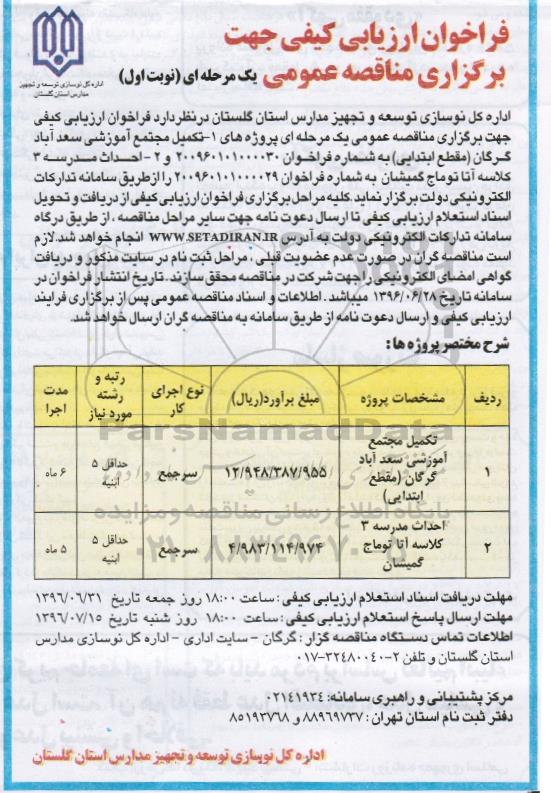 فراخوان ارزیابی کیفی جهت
برگزاری مناقصه عمومی یک مرحله ای (نوبت اول)
اداره کل نوسازی توسعه و تجهیز
مدارس استان گلستان
اداره کل نوسازی توسعه و تجهیز مدارس استان گلستان درنظردارد فراخوان ارزیابی کیفی
جهت برگزاری مناقصه عمومی یک مرحله ای پروژه های ۱-تکمیل مجتمع آموزشی سعد آباد
گرگان (مقطع ابتدایی) به شماره فراخوان ۲۰۰۹۶۰۱۰۱۰۰۰۰۳۰ و ۲-احداث مدرسه ۳
کلاسه آتا توماج گمیشان به شماره فراخوان ۲۰۰۹۶۰۱۰۱۰۰۰۰۲۹ را ازطریق سامانه تدارکات
الکترونیکی دولت برگزار نماید.کلیه مراحل برگزاری فراخوان ارزیابی کیفی از دریافت و تحویل
اسناد استعلام ارزیابی کیفی تا ارسال دعوت نامه جهت سایر مراحل مناقصه ، از طریق درگاه
سامانه تدارکات الکترونیکی دولت به آدرس WWW.SETADIRAN.IR انجام خواهد شد.لازم
است مناقصه گران در صورت عدم عضویت قبلی ، مراحل ثبت نام در سایت مذکور و دریافت
گواهی امضای الکترونیکی را جهت شرکت در مناقصه محقق سازند . تاریخ انتشار فراخوان در
سامانه تاریخ ۱۳۹۶/۰۶/۲۸ میباشد . اطلاعات و اسناد مناقصه عمومی پس از برگزاری فرایند
ارزیابی کیفی و ارسال دعوت نامه از طریق سامانه به مناقصه گران ارسال خواهد شد.
شرح مختصر پروژه ها :
ردیف مشخصات پروژه مبلغ برآورد(ریال) نوع اجرای کار رتبه و رشته مورد نیاز مدت اجرا
۱ تکمیل مجتمع آموزشی سعد آباد گرگان (مقطع ابتدایی) ۱۲/۹۴۸/۳۸۷/۹۵۵ سرجمع حداقل ۵ ابنیه ۶ ماه
۲ احداث مدرسه ۳ کلاسه آتا توماج گمیشان ۴/۹۸۳/۱۱۴/۹۷۴ سرجمع حداقل ۵ ابنیه ۵ ماه
ParsNamadData
مهلت دریافت اسناد استعلام ارزیابی کیفی : ساعت ۱۸:۰۰ روز جمعه تاریخ ۱۳۹۶/۰۶/۳۱
مهلت ارسال پاسخ استعلام ارزیابی کیفی : ساعت ۱۸:۰۰ روز شنبه تاریخ ۱۳۹۶/۰۷/۱۵
اطلاعات تماس دستگاه مناقصه گزار : گرگان - سایت اداری - اداره کل نوسازی مدارس
استان گلستان و تلفن ۲-۰۱۷-۳۲۴۸۰۰۴۰
مرکز پشتیبانی و راهبری سامانه: ۰۲۱۴۱۹۳۴
دفتر ثبت نام استان تهران : ۸۸۹۶۹۷۳۷ و ۸۵۱۹۳۷۶۸
اداره کل نوسازی توسعه و تجهیز مدارس استان گلستان